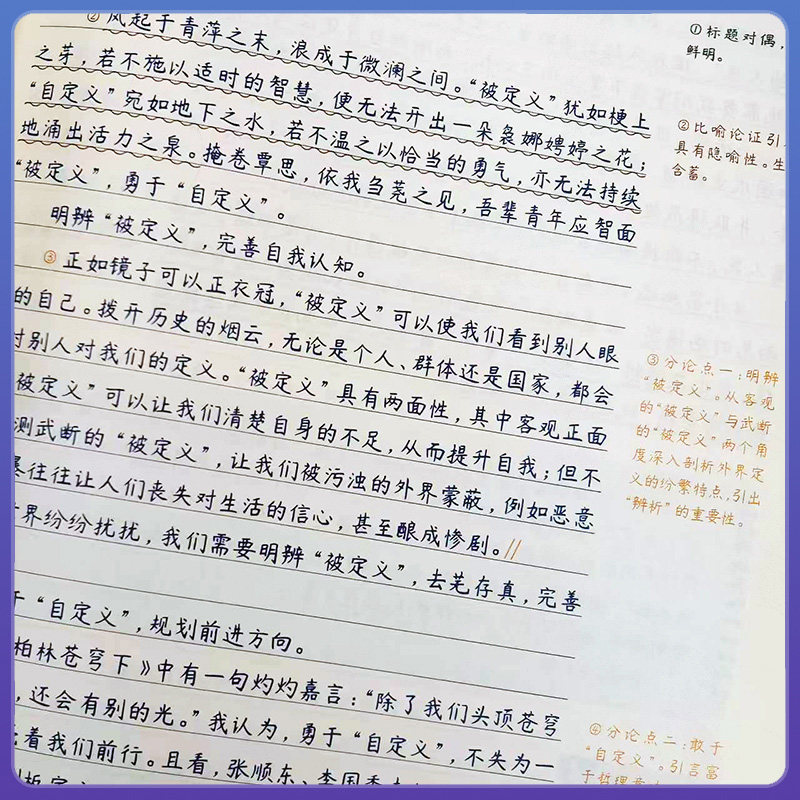 ②风起于青萍之末，浪成于微澜之间。“被定义”犹如梗上
之芽，若不施以适时的智慧，便无法开出一朵袅娜娉婷之花；
“自定义”宛如地下之水，若不温之以恰当的勇气，亦无法持续
地涌出活力之泉。掩卷覃思，依我刍荛之见，吾辈青年应智面
“被定义”，勇于“自定义”。
明辨“被定义”，完善自我认知。
③正如镜子可以正衣冠，“被定义”可以使我们看到别人眼
的自己。拨开历史的烟云，无论是个人、群体还是国家，都会
对别人对我们的定义。“被定义”具有两面性，其中客观正面
被定义”可以让我们清楚自身的不足，从而提升自我；但不
测武断的“被定义”，让我们被污浊的外界蒙蔽，例如恶意
往往让人们丧失对生活的信心，甚至酿成惨剧。//
界纷纷扰扰，我们需要明辨“被定义”，去芜存真，完善
于“自定义”，规划前进方向。
柏林苍穹下》中有一句灼灼嘉言：“除了我们头顶苍穹
，还会有别的光。”我认为，勇于“自定义”，不失为一
着我们前行。且看，张顺东、李国秀
①标题对偶，
鲜明。
②比喻论证引
具有隐喻性。生
含蓄。
③分论点一：明辨
“被定义”。从客观
的“被定义”与武断
的“被定义”两个角
度深入剖析外界定
义的纷繁特点，引出
“辨析”的重要性。
④分论点二：敢于
“自定义”。引言富
于哲理意